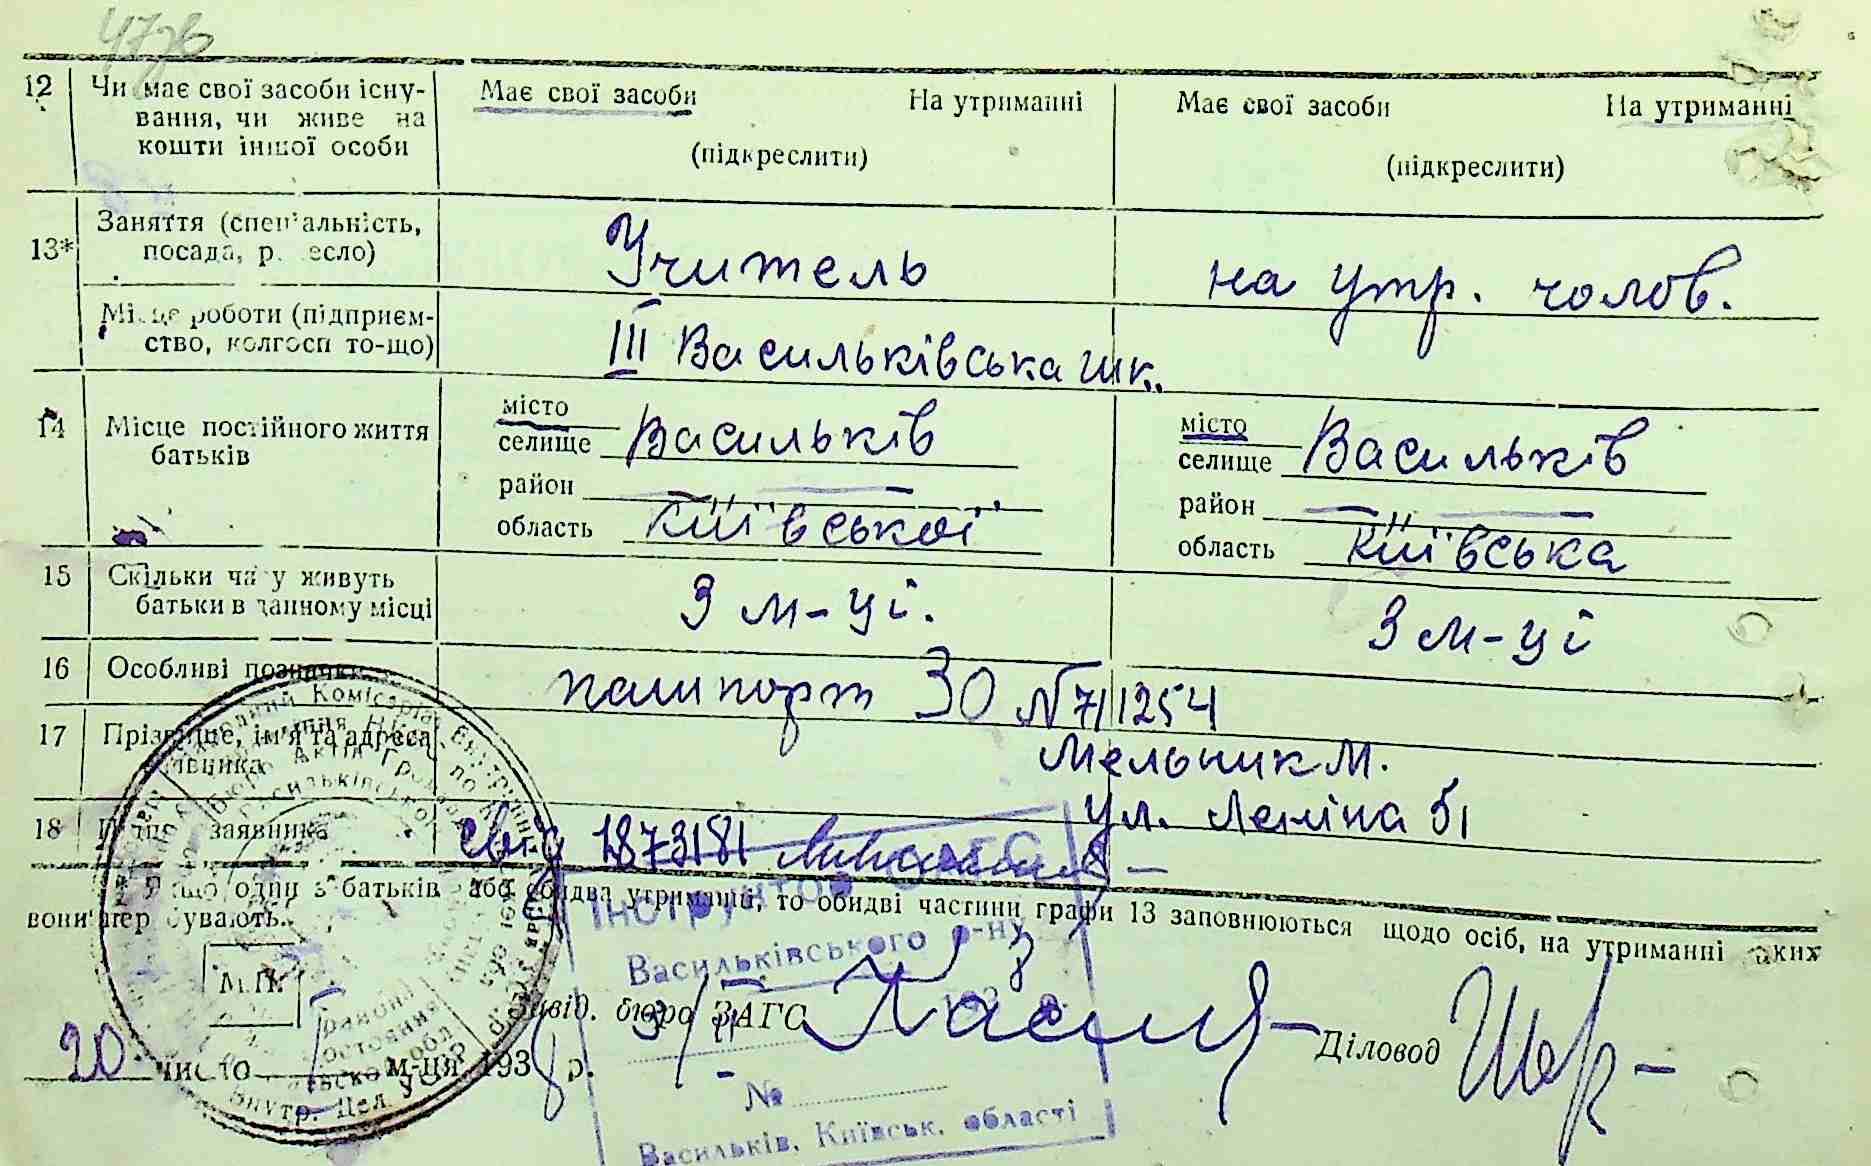 12 Чи має свої засоби існу- Має свої засоби На утриманні Має свої засоби На утриманні
вання, чи живе на
кошти іншої особи (підкреслити) (підкреслити)
13* Заняття (спеціальність, Учитель на утр. чолов.
посада, ремесло)
Місце роботи (підприєм- III Васильківська шк.
ство, колгосп то-що)
14 Місце постійного життя місто місто
батьків селище Васильків селище Васильків
район — — район — —
область Київської область Київська
15 Скільки часу живуть 3 м-ці. 3 м-ці
батьки в данному місці
16 Особливі позначки паспорт ЗО №711254
17 Прізвище, ім'я та адреса Мельник М.
заявника ул. Леніна 51
18 Підпис заявника 1873181
Якщо один з батьків або обидва утриманці, то обидві частини графи 13 заповнюються щодо осіб, на утриманні яких
вони перебувають.
Інструктор ЗАГС
Васильківського р-ну
М.П.
Завід. бюро ЗАГС Діловод
20 число м-ця 1938 р.
№
Васильків, Київськ. області